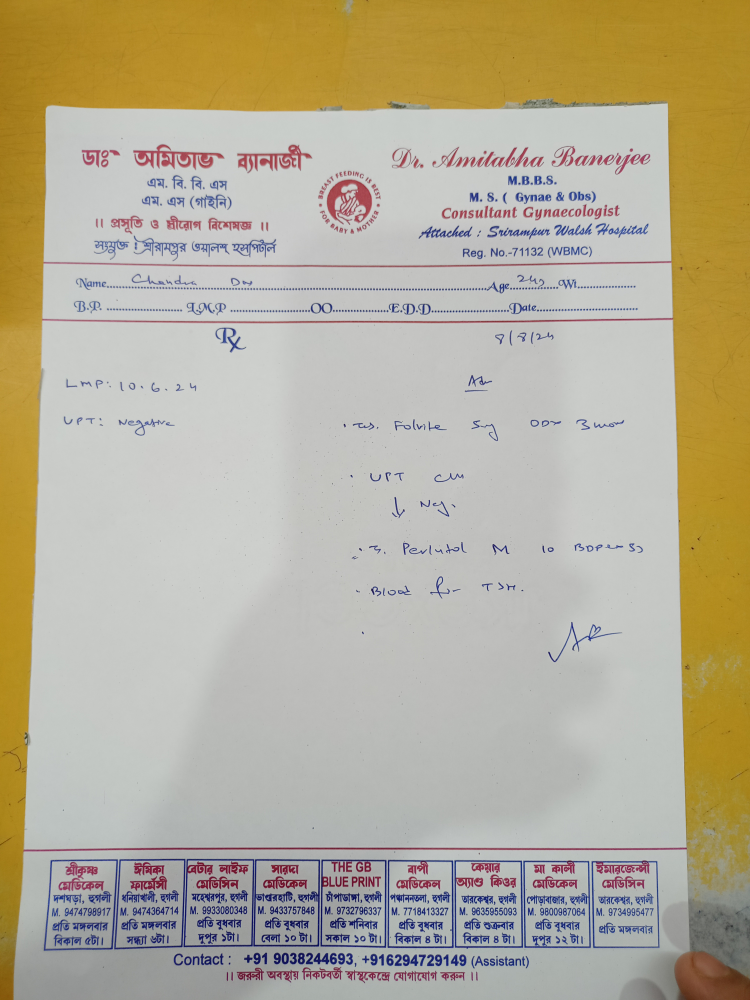 ডাঃ অমিতাভ ব্যানার্জী
এম. বি. বি. এস
এম. এস (গাইনি)
।। প্রসূতি ও স্ত্রীরোগ বিশেষজ্ঞ ।।
সংযুক্ত : শ্রীরামপুর ওয়ালশ্ হসপিটাল
BREAST FEEDING IS BEST
FOR BABY & MOTHER
Dr. Amitabha Banerjee
M.B.B.S.
M. S. ( Gynae & Obs)
Consultant Gynaecologist
Attached : Srirampur Walsh Hospital
Reg. No.-71132 (WBMC)
Name Chandra Age 24y Wt
B.P. L.M.P OO E.D.D Date
Rx 8/8/24
LMP: 10.6.24 Adv
UPT: Negative
Folvite 5mg
UPT
↓ Neg.
Perlutol M 10
Blood for TSH.
শ্রীকৃষ্ণ মেডিকেল
দশঘড়া, হুগলী
M. 9474798917
প্রতি মঙ্গলবার
বিকাল ৫টা।
ঈমিকা ফার্মেসী
ধনিয়াখালী, হুগলী
M. 9474364714
প্রতি মঙ্গলবার
সন্ধ্যা ৬টা।
বেটার লাইফ মেডিসিন
মহেশ্বরপুর, হুগলী
M. 9933080348
প্রতি বুধবার
দুপুর ১টা।
সারদা মেডিকেল
ভাণ্ডারহাটি, হুগলী
M. 9433757848
প্রতি বুধবার
বেলা ১০ টা।
THE GB BLUE PRINT
চাঁপাডাঙ্গা, হুগলী
M. 9732796337
প্রতি শনিবার
সকাল ১০ টা।
বাপী মেডিকেল
পঞ্চাননতলা, হুগলী
M. 7718413327
প্রতি বুধবার
বিকাল ৪ টা।
কেয়ার অ্যাণ্ড কিওর
তারকেশ্বর, হুগলী
M. 9635955093
প্রতি শুক্রবার
বিকাল ৪ টা।
মা কালী মেডিকেল
পোড়াবাজার, হুগলী
M. 9800987064
প্রতি বুধবার
দুপুর ১২ টা।
ইমারজেন্সী মেডিসিন
তারকেশ্বর, হুগলী
M. 9734995477
প্রতি মঙ্গলবার
Contact : +91 9038244693, +916294729149 (Assistant)
।। জরুরী অবস্থায় নিকটবর্তী স্বাস্থ্যকেন্দ্রে যোগাযোগ করুন ।।